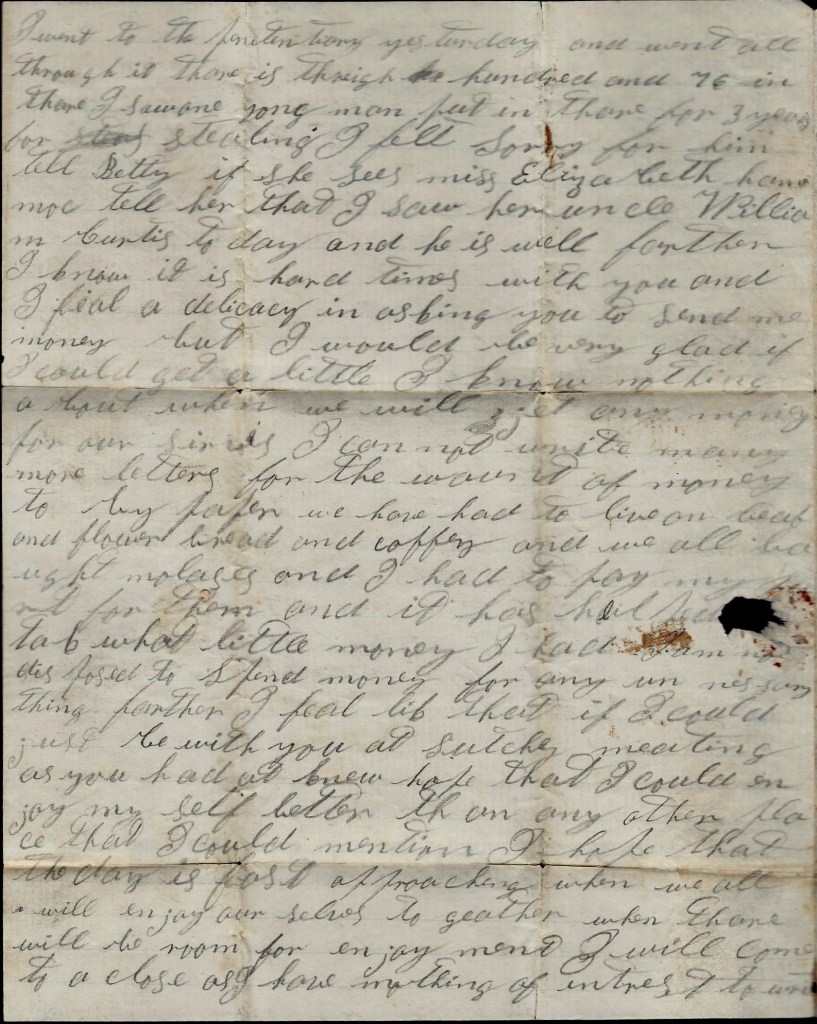 I went to the penitentiary yesturday and went all
through it thare is threigh hundred and 76 in
thare I saw one yong man put in thare for 3 years
for stealing I felt sorry for him
tell Betty if she sees miss Eliza beth ham
moc tell her that I saw her uncle Willia
m Curtis to day and he is well farther
I know it is hard times with you and
I feal a delicacy in asking you to send me
money but I would be very glad if
I could get a little I know nothing
a bout when we will get any money
for our I can not write many
more letters for the waunt of money
to buy paper we have had to live on beaf
and flower bread and coffey and we all ba
ught molases and I had to pay my
rt for them and it has
tak what little money I had I am not
dis posed to spend money for any un nessary
thing farther I feal lik that if I could
just be with you at sutch meating
as you had at knew hope that I could en
joy my self better th an any other pla
ce that I could mention I hope that
the day is fast approaching when we all
will en joy our selves to geather when thare
will be room for en joy ment I will come
to a close as I have nothing of intrest to write